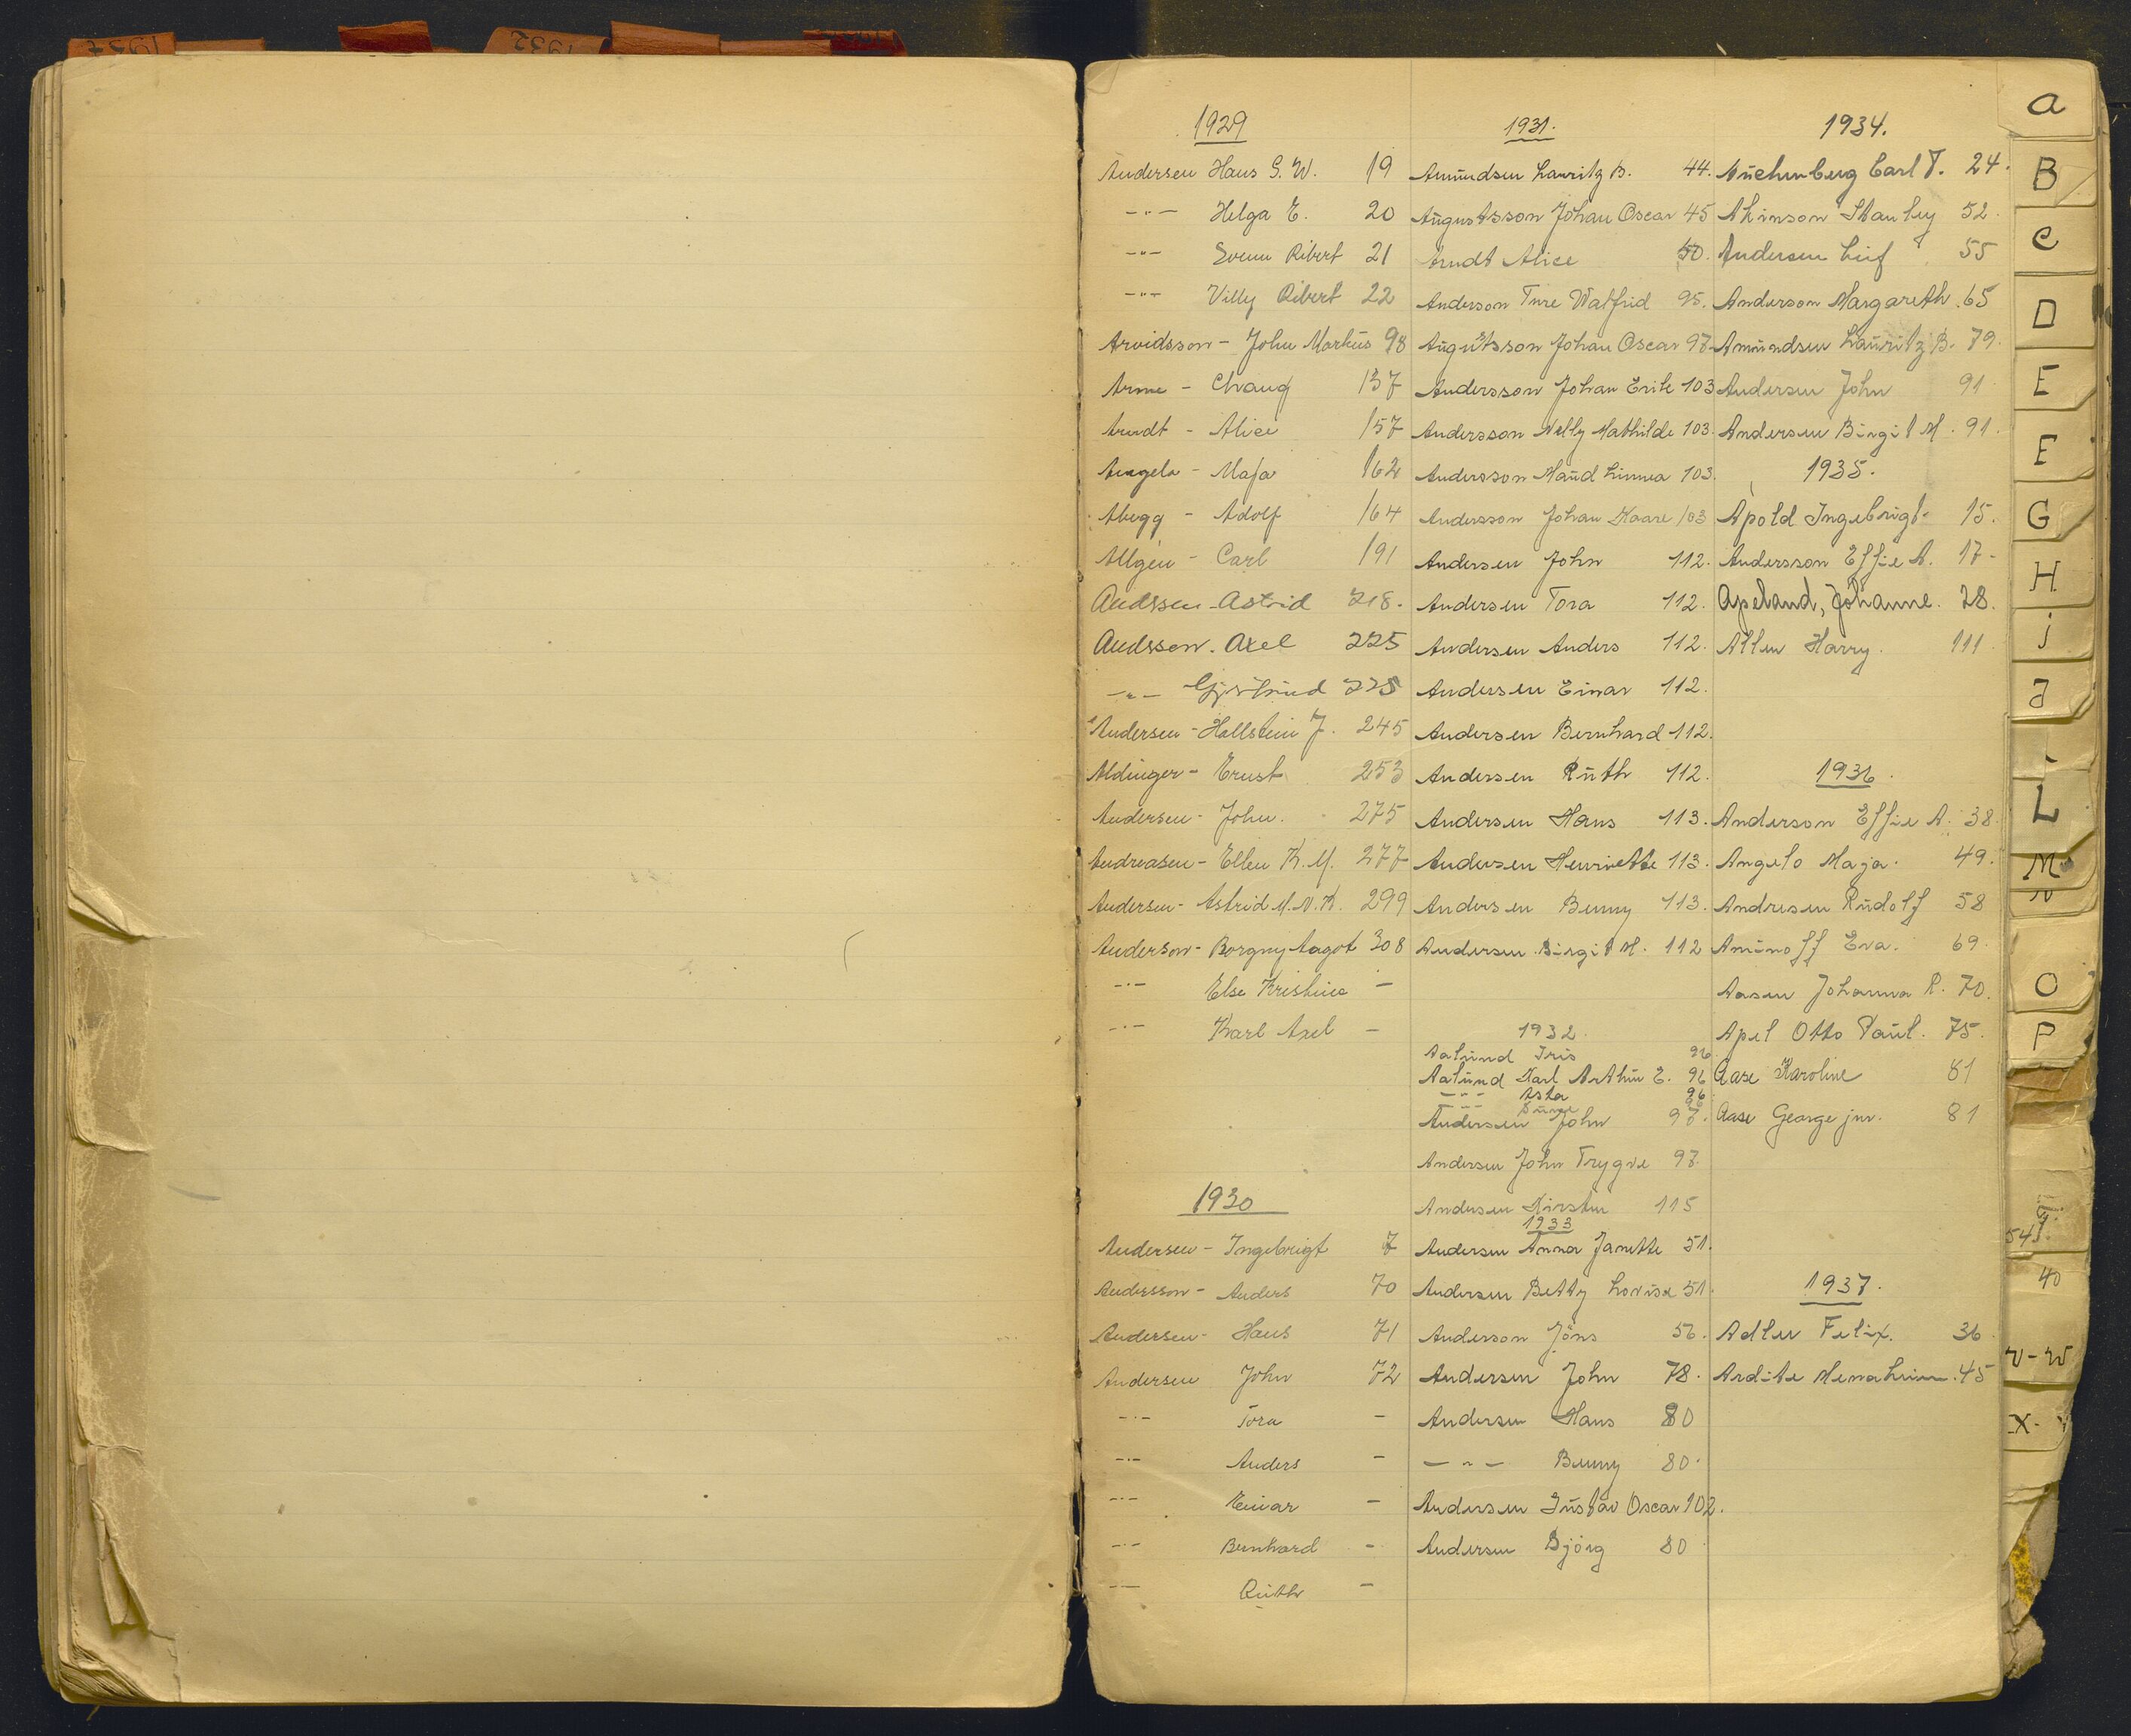 1929
Andersen Hans G. W. 19
-"- Helga E. 20
-"- Svenn Ribert 21
-"- Villy Ribert 22
Arvidsson - John Markus 98
Arme - Chaug 137
Arndt - Alice 157
Angelo - Maja 162
Abegg - Adolf 164
Allgén - Carl 191
Andssen - Astrid 218.
Andsson. Axel 225
-"- 225
Andersen - Hallstein J. 245
Aldinger - Ernst 253
Andersen - John. 275
Andreasen - Ellen K. M. 277
Andersen - Astrid M. N. K. 299
Anderson - Borgny Aagot 308
-"- Else Kristine -
-"- Karl Axel -
1930
Andersen - Ingebrigt 7
Andersson - Anders 70
Andersen - Hans 71
Andersen John 72
-"- Tora -
-"- Anders -
-"- Einar -
-"- Bernhard -
-"- Ruth -
1931.
Amundsen Lauritz B. 44.
Augustsson Johan Oscar 45
Arndt Alice 50.
Anderson Ture Walfrid 95.
Augustsson Johan Oscar 97.
Andersson Johan Erik 103
Andersson Nelly Mathilde 103.
Andersson Maud Linnea 103.
Andersson Johan Kaare 103
Andersen John 112.
Andersen Tora 112.
Andersen Anders 112.
Andersen Einar 112.
Andersen Bernhard 112.
Andersen Ruth 112.
Andersen Hans 113.
Andersen Henriette 113.
Andersen Benny 113.
Andersen Birgit M. 112
1932.
Aalund Iris 96.
Aalund Karl Arthur E. 96
-"- Asta 96
-"- Sune 96
Andersen John 97.
Andersen John Trygve 97.
Andersen Kirsten 115
1933
Andersen Anna Janette 51.
Andersen Betty Lovise 51.
Anderson Jöns 56.
Andersen John 78.
Andersen Hans 80
-"- Benny 80.
Andersen Gustav Oscar 102.
Andersen Bjørg 80
1934.
Carl T. 24.
Stanley 52.
Andersen Leif 55
Anderson Margareth. 65
Amundsen Lauritz B. 79.
Andersen John 91
Andersen Birgit M. 91.
1935.
Apold Ingebrigt- 15.
Andersson Effie A. 17-
Apeland, Johanne. 28.
Allen Harry. 111
1936.
Anderson Effie A. 38
Angelo Maja. 49.
Andresen Rudolf 58
Aminoff Eva. 69.
Aasen Johanna R. 70.
Apel Otto Paul. 75.
Aase Karoline 81
Aase George jnr. 81
1937.
Adler Felix. 36
Ardite 45
a
B
C
D
E
F
G
H
i
J
L
M
N
O
P
40
V-W
X
1932